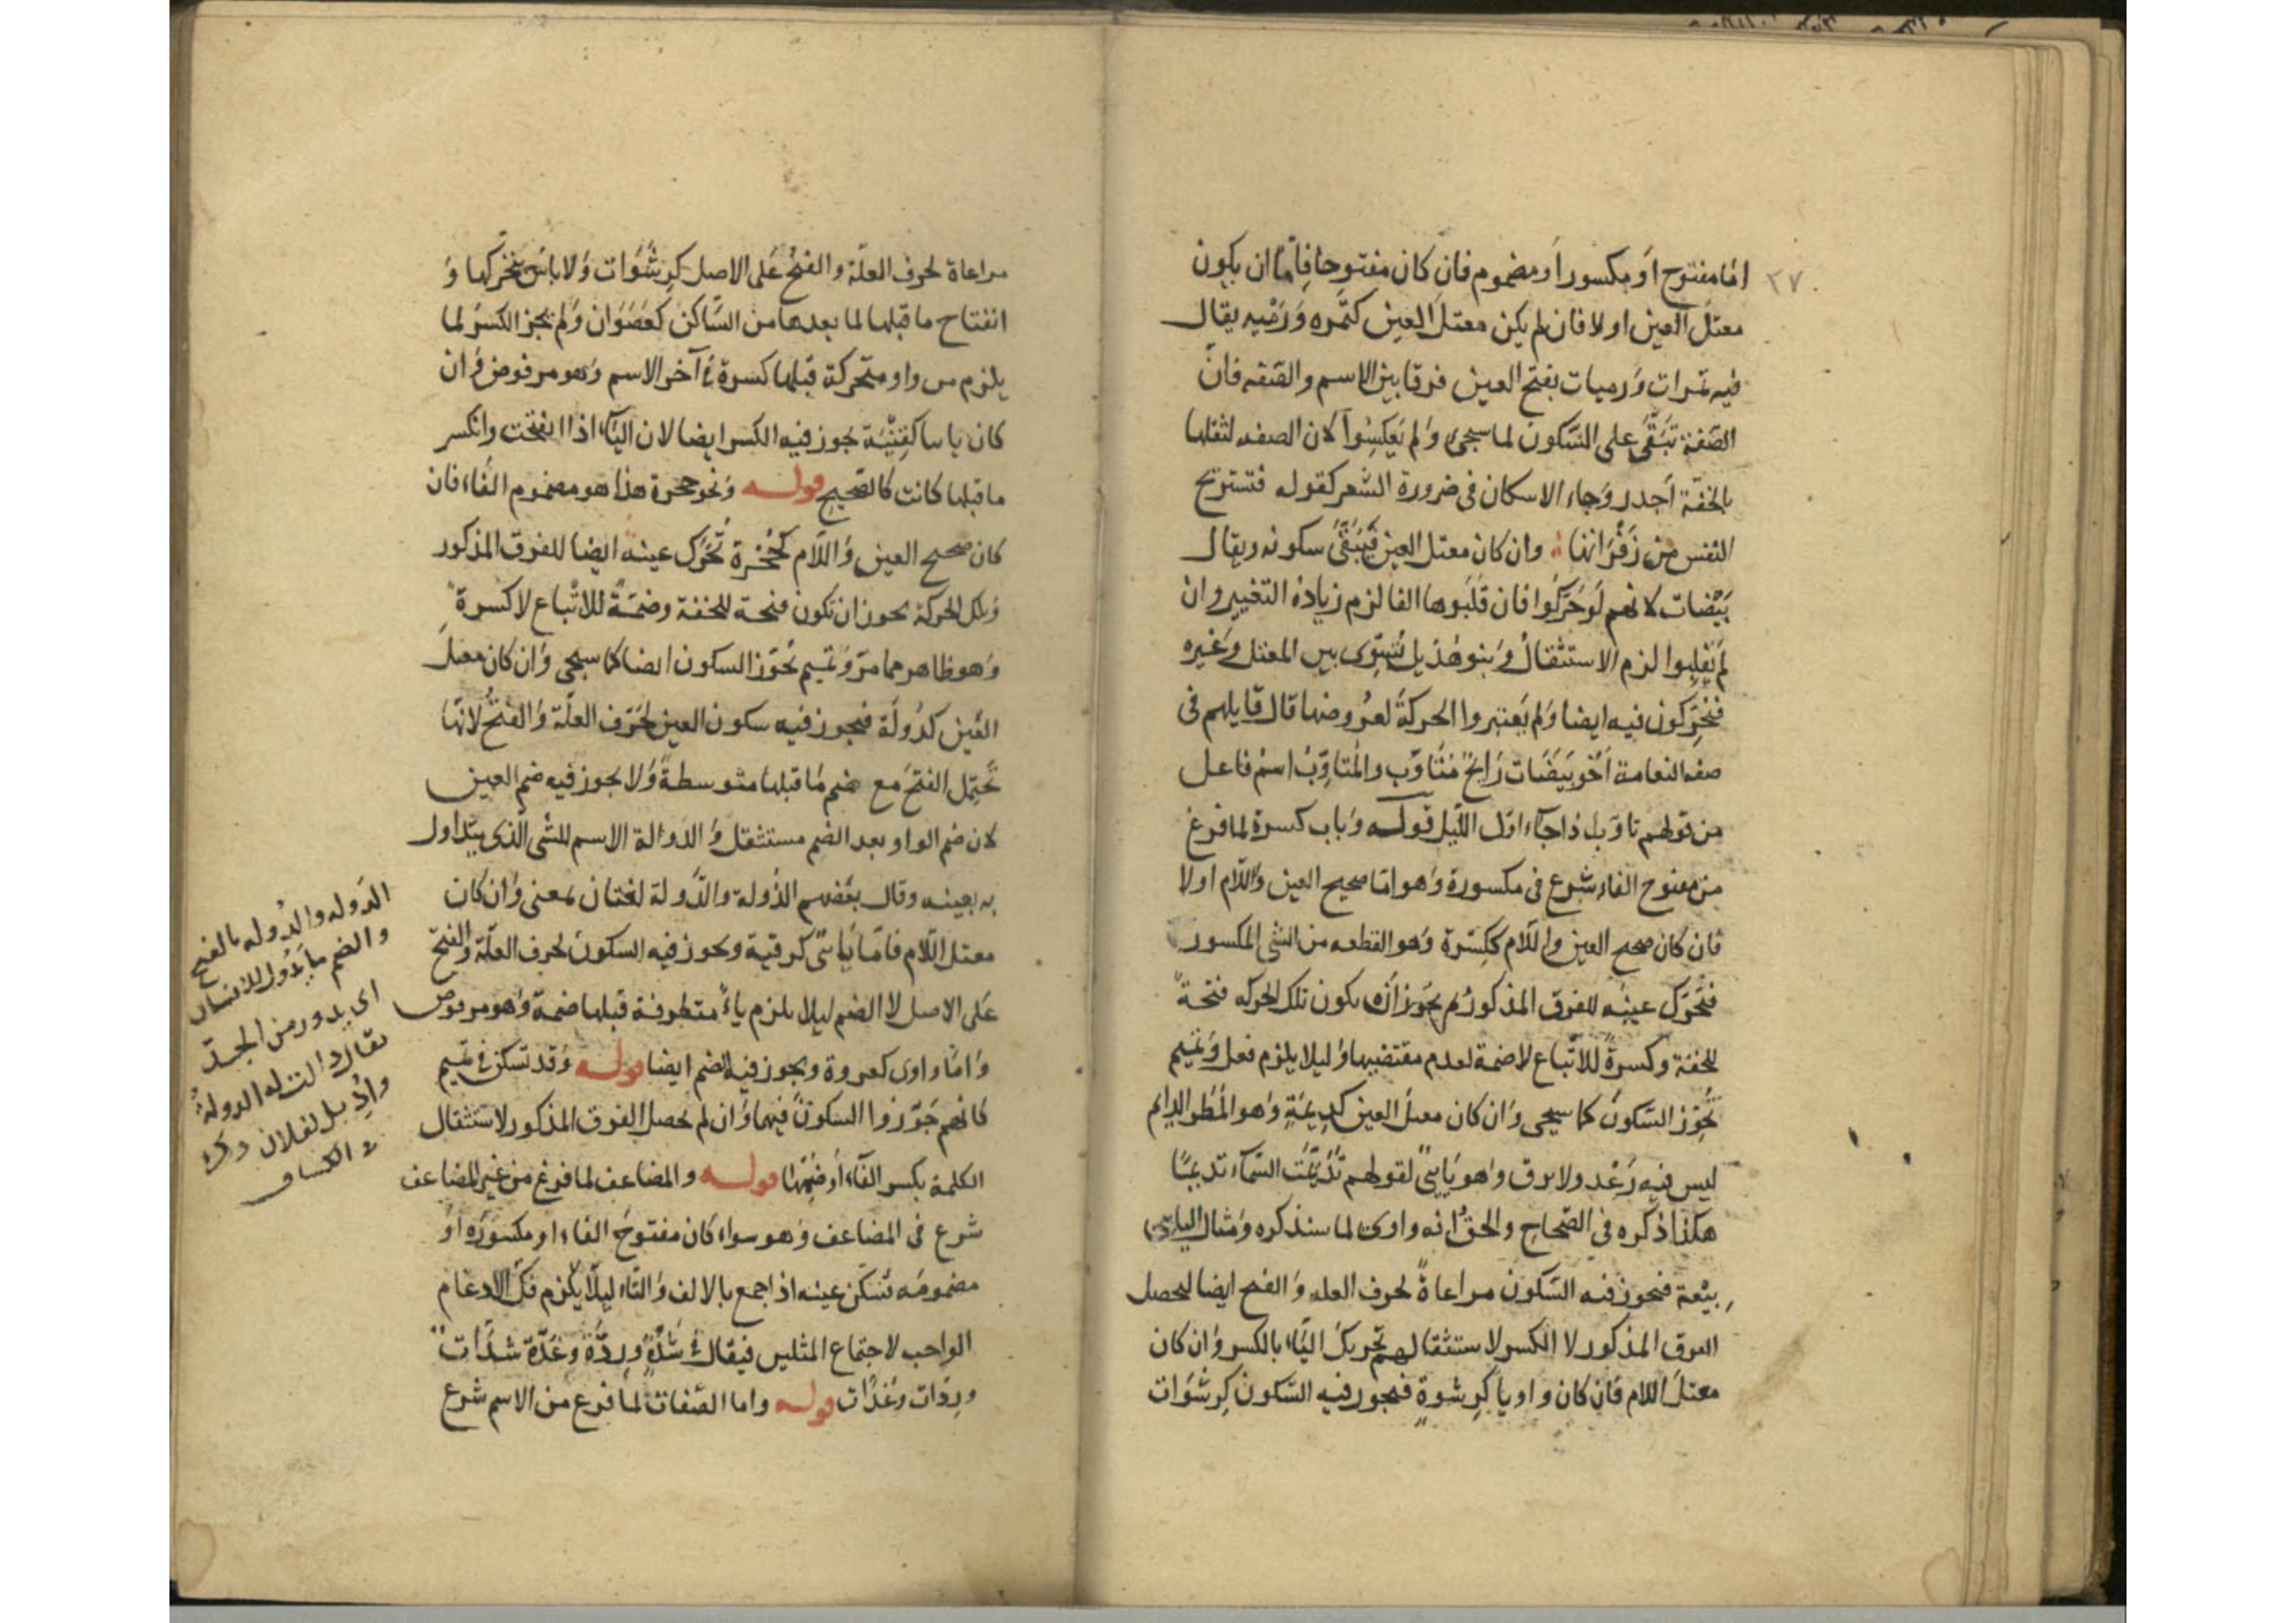 ٢٧
امّا مفتوح او مكسور او مضموم فان كان مفتوحا فامّا ان يكون
معتلّ العين او لا فان لم يكن معتلّ العين كتمره ورَمْيه يقال
فيه تمرات ورميات بفتح العين فرقا بين الاسم والصفه فانّ
الصّفة تَبْقَى على السّكون لما سيجئ ولم يَعكِسُوا لان الصفه لثقلها
بالخفّة اَجدر وجاء الاسكان في ضرورة الشعر كقوله فتستريح
النفس من زَفْرَاتها وان كان معتل العين فَيَبْقَى سكونه ويقال
بَيْضات لانهم لو حَرّكوا فان قَلَبوها الفا لزم زيادة التغيير وان
لم يَقلِبوا لزم الاستثقال وبنو هُذيل تُسَوِّى بين المعتل وغيره
فيُحَرّكون فيه ايضا ولم يَعتبروا الحركة لعُروضها قال قايلهم فى
صفه النعامة اَخُو بَيَضَات رَايحٌ مُتَأوّب والمُتأوِّبُ اسمُ فاعل
من قولهم تاوّب اذا جاء اوّل اللّيل قوله وباب كسرة لما فرغ
من مفتوح الفاء شرع فى مكسورة وهو امّا صحيح العين واللّام او لا
فان كان صحيح العين واللّام ككِسْرة وهو القطعه من الشئ المكسور
فتُحَرّك عينه للفرق المذكور ثم يجوز ان يكون تلك الحركه فتحةً
للخفة وكسرةً للاتّباع لا ضمة لعدم مقتضيها وليلا يلزم فعل وتميم
تُجَوّز السّكون كما سيجى وان كان معتل العين كدِيمَةٍ وهو المَطَر الدايم
ليس فيه رَعْد ولا برق وهو يَاىّ لقولهم تَدَيّمَت السّماء تديمًا
هكذا ذكره فى الصّحاح والحقّ انه واوى لما سنذكره ومثال اليائى
بِيْعة فيجوز فيه السّكون مراعاةً لحرف العله والفتح ايضا ليحصل
الفرق المذكور لا الكسر لاستثقالهم تحريك الياء بالكسر وان كان
معتلّ اللام فان كان واويا كرِشوةٍ فيجوز فيه السّكون كرِشْوَات
مراعاة لحرف العلّة والفتحُ على الاصل كرِشَوَات ولا باس بتحرّكها و
انفتاح ما قبلها لما بعدها من السّاكن كعَصَوَان ولم يجز الكسرُ لما
يلزم من واو متحركة قبلها كسرة فى آخر الاسم وهو مرفوض وان
كان يايا كقِنْيَة يجوز فيه الكسر ايضا لان الياء اذا انفتحت وانكسر
ما قبلها كانت كالصّحيح قوله ونحو حجرة هذا هو مضموم الفاء فان
كان صحيح العين واللّام كحُجْرة تُحَرّك عينه ايضا للفرق المذكور
وتلك الحركة يجوز ان تكون فتحة للخفة وضمّةً للاتّباع لا كسرةً
وهو ظاهر مما مرّ وتميم تُجَوّز السكون ايضا كما سيجى وان كان معتلّ
العين كدُولَة فيجوز فيه سكون العين لحَرْف العلّة والفتحُ لانّها
تَحتمل الفتحَ مع ضم ما قبلها متوسطةً ولا يجوز فيه ضم العين
لان ضم الواو بعد الضم مستثقل والدّوالة الاسم للشئ الّذى يتداول
به بعينه وقال بعضهم الدُولة والدَّولة لغتان بمعنى وان كان
معتل اللّام فامّا يَاىّ كرقية ويجوز فيه السكونُ لحرف العلّة والفتح
على الاصل لا الضم ليلا يلزم ياءٌ متطرفة قبلها ضمة وهو مرفوض
وامّا واوى كعروة ويجوز فيه الضم ايضا قوله وقد تسكن فى تميم
كانهم جَوّزوا السكون فيهما وان لم يحصل الفرق المذكور لاستثقال
الكلمة بكسر الفاء او ضمّها قوله والمضاعف لما فرغ من غير المضاعف
شرع فى المضاعف وهو سواء كان مفتوحَ الفاء او مكسورَه او
مضمومَه تسكن عينه اذا جمع بالالف والتّاء ليلّا يلزم فكّ الادغام
الواجب لاجتماع المثلين فيقال فى شَدّةٍ ورِدّةٍ وغُدّة شدّات
وردّات وغدّات قوله واما الصّفات لما فرغ من الاسم شرع
الدَوله والدُوله بالفتح
والضم ما يَدُول للانسان
اى يدور من الجدّ
يقال دالت له الدولةُ
واُدِيل لفلان ذكره
فى الكشاف